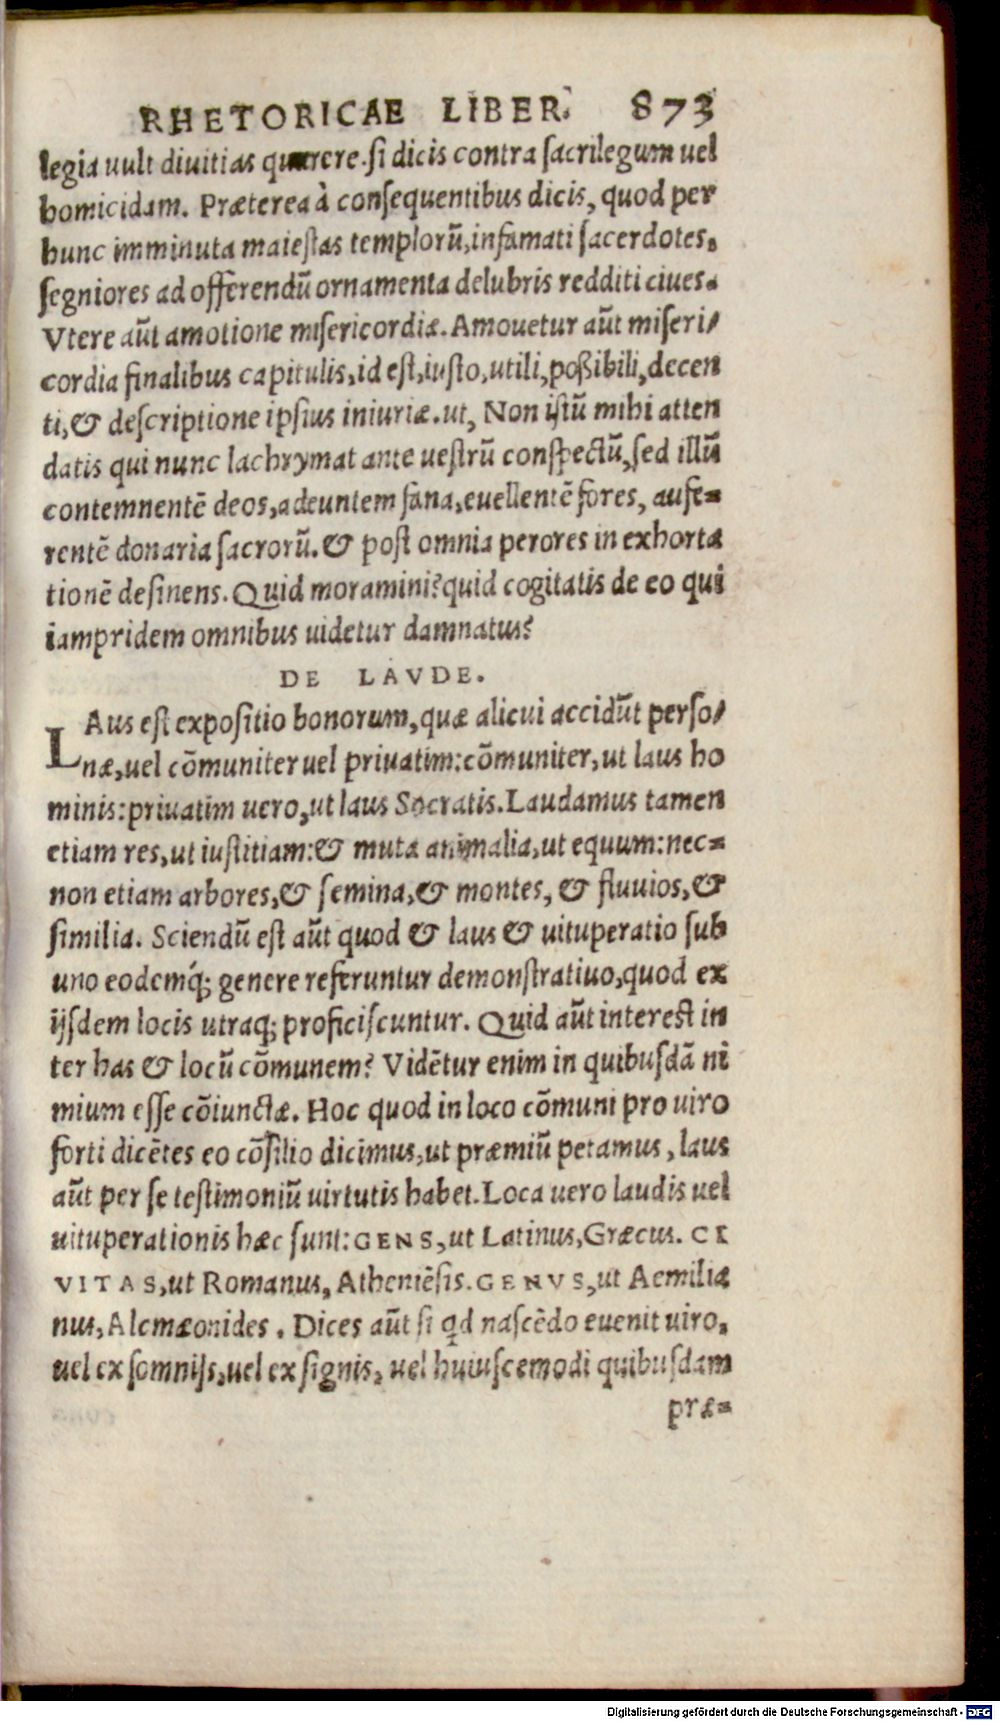 RHETORICAE LIBER. 873
legia uult diuitias quærere. ſi dicis contra ſacrilegum uel
homicidam. Præterea à conſequentibus dicis, quod per
hunc imminuta maieſtas templorũ, infamati ſacerdotes,
ſegniores ad offerendũ ornamenta delubris redditi ciues.
Vtere aũt amotione miſericordiæ. Amouetur aũt miſeri/
cordia finalibus capitulis, id eſt, iuſto, utili, poßibili, decen
ti, & deſcriptione ipſius iniuriæ. ut, Non iſtũ mihi atten
datis qui nunc lachrymat ante ueſtrũ conſpectũ, ſed illũ
contemnentẽ deos, adeuntem fana, euellentẽ fores, aufe=
rentẽ donaria ſacrorũ. & poſt omnia perores in exhorta
tionẽ deſinens. Quid moramini? quid cogitatis de eo qui
iampridem omnibus uidetur damnatus?
DE LAVDE.
LAus eſt expoſitio bonorum, quæ alicui accidũt perſo/
næ, uel cõmuniter uel priuatim: cõmuniter, ut laus ho
minis: priuatim uero, ut laus Socratis. Laudamus tamen
etiam res, ut iuſtitiam: & muta animalia, ut equum: nec=
non etiam arbores, & ſemina, & montes, & fluuios, &
ſimilia. Sciendũ eſt aũt quod & laus & uituperatio ſub
uno eodemq́; genere referuntur demonſtratiuo, quod ex
ijſdem locis utraq; proficiſcuntur. Quid aũt intereſt in
ter has & locũ cõmunem? Vidẽtur enim in quibuſdã ni
mium eſſe cõiunctæ. Hoc quod in loco cõmuni pro uiro
forti dicẽtes eo cõſilio dicimus, ut præmiũ petamus, laus
aũt per ſe teſtimoniũ uirtutis habet. Loca uero laudis uel
uituperationis hæc ſunt: GENS, ut Latinus, Græcus. CI
VITAS, ut Romanus, Atheniẽſis. GENVS, ut Aemilia
nus, Alcmæonides. Dices aũt ſi qd naſcẽdo euenit uiro,
uel ex ſomnijs, uel ex ſignis, uel huiuſcemodi quibuſdam
præ=
Digitalisierung gefördert durch die Deutsche Forschungsgemeinschaft - DFG